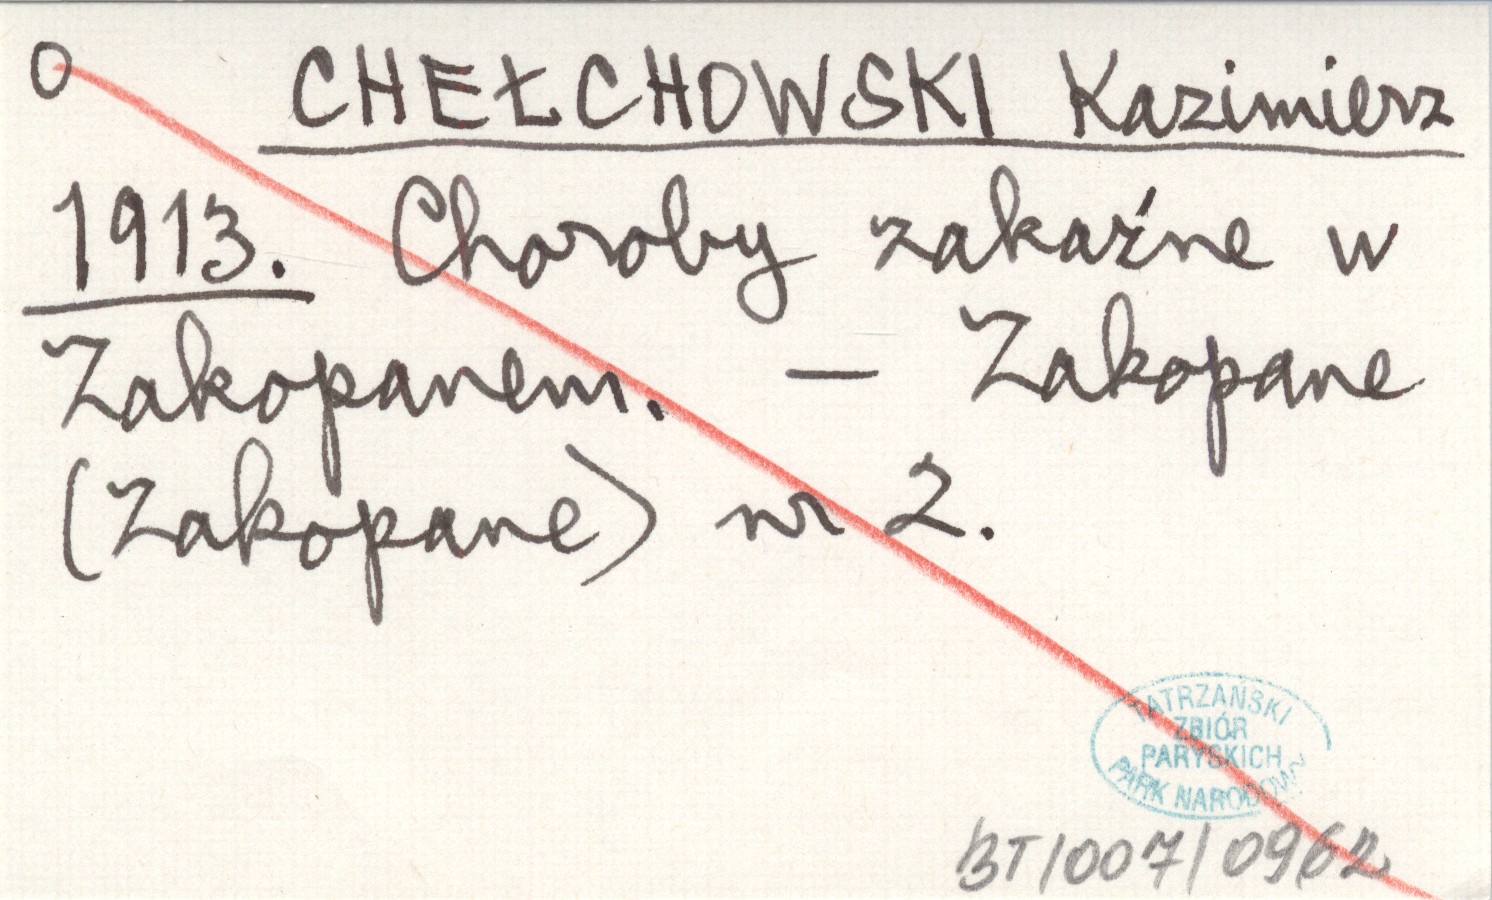 O CHEŁCHOWSKI Kazimierz
1913. Choroby zakaźne w
Zakopanem. — Zakopane
(Zakopane) nr 2.
TATRZAŃSKI
ZBIÓR
PARYSKICH
PARK NARODOWY
BT/007/0962